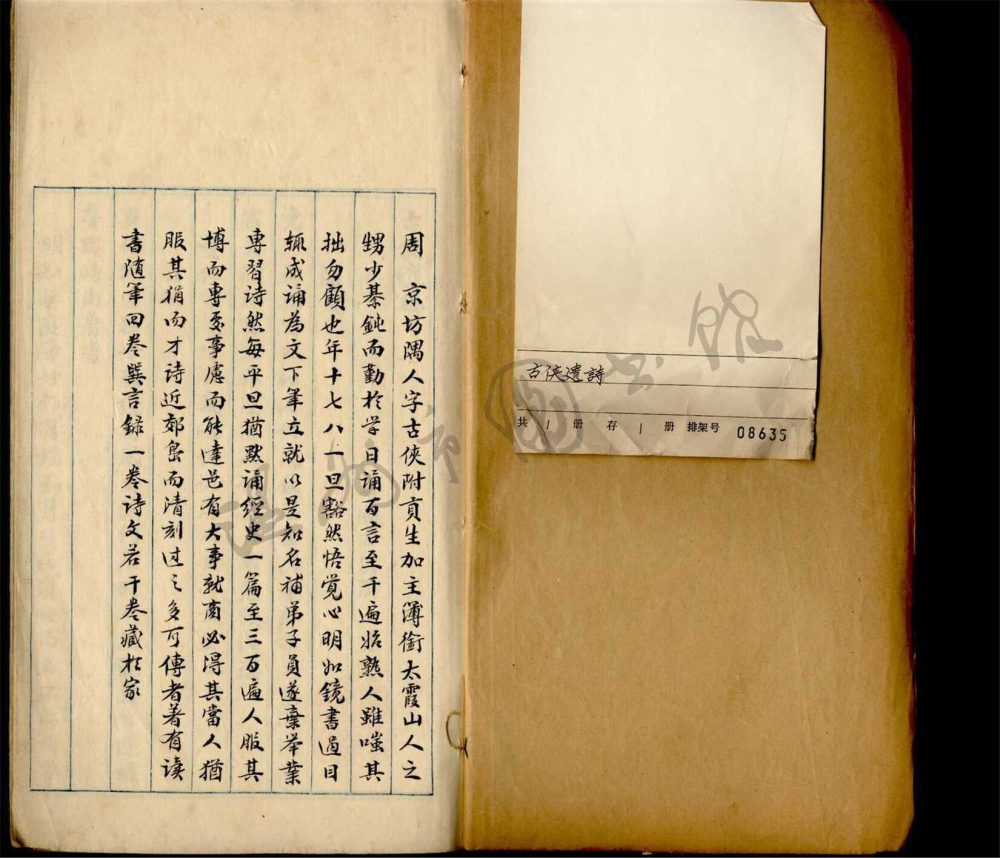 周　京坊隅人字古俠附貢生加主簿銜太霞山人之
甥少綦鈍而勤於学日誦百言至千遍始熟人雖嗤其
拙勿顧也年十七八一旦豁然悟覚心明如鏡書過目
輒成誦為文下筆立就以是知名補弟子員遂棄举業
專習詩然每平旦猶默誦經史一篇至三百遍人服其
博而專受事慮而能達邑有大事就商必得其當人猶
服其狷而才詩近郊島而清刻过之多可傳者著有读
書随筆四卷巽言録一卷詩文若干卷藏於家
古俠遺詩
共 1 册 存 1 册 排架号 08635
市圖书館